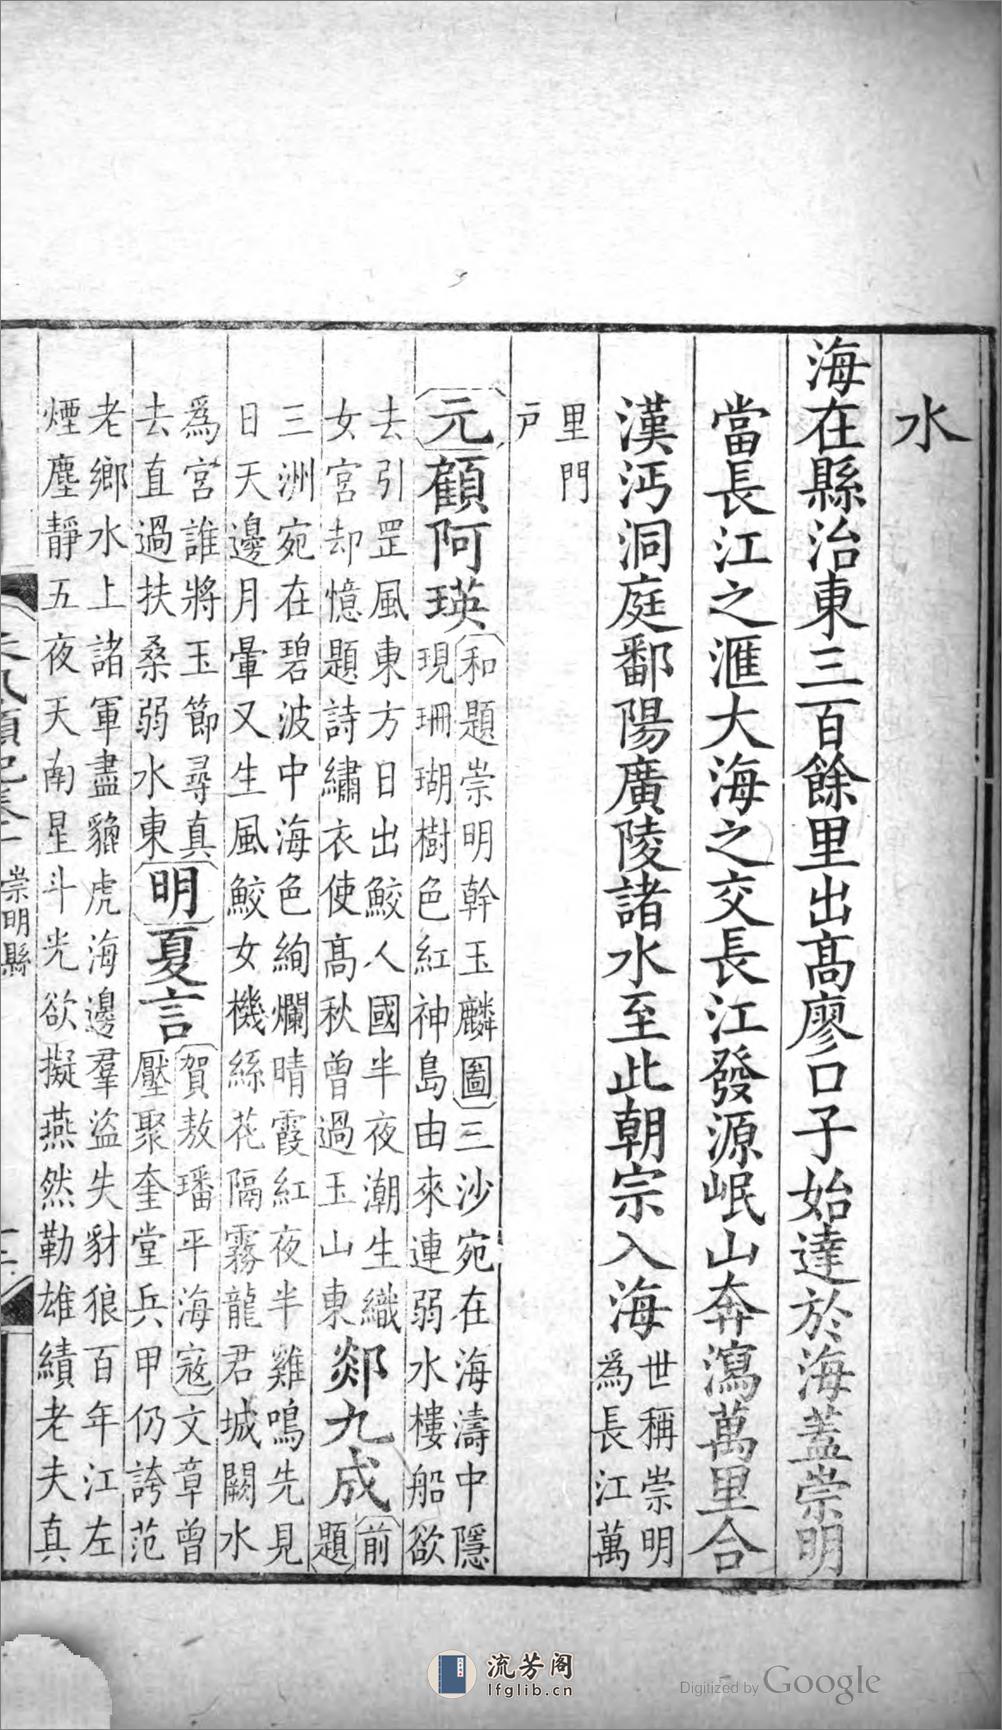 水
海在縣治東三百餘里出高廖口子始達於海蓋崇明
當長江之滙大海之交長江發源岷山奔瀉萬里合
漢沔洞庭鄱陽廣陵諸水至此朝宗入海
世稱崇明
爲長江萬
里門
戶
元顧阿瑛
和題崇明幹玉麟圖三沙宛在海濤中隱
現珊瑚樹色紅神島由來連弱水樓船欲
去引罡風東方日出鮫人國半夜潮生織
女宮却憶題詩繡衣使高秋曾過玉山東
郯九成
前
題
三洲宛在碧波中海色絢爛晴霞紅夜半雞鳴先見
日天邊月暈又生風鮫女機絲花隔霧龍君城闕水
爲宮誰將玉節尋真
去直過扶桑弱水東
明夏言
賀敖璠平海寇文章曾
壓聚奎堂兵甲仍誇范
老鄉水上諸軍盡貔虎海邊羣盜失豺狼百年江左
煙塵靜五夜天南星斗光欲擬燕然勒雄績老夫真
崇明縣
流芳阁
lfglib.cn
Digitized by Google